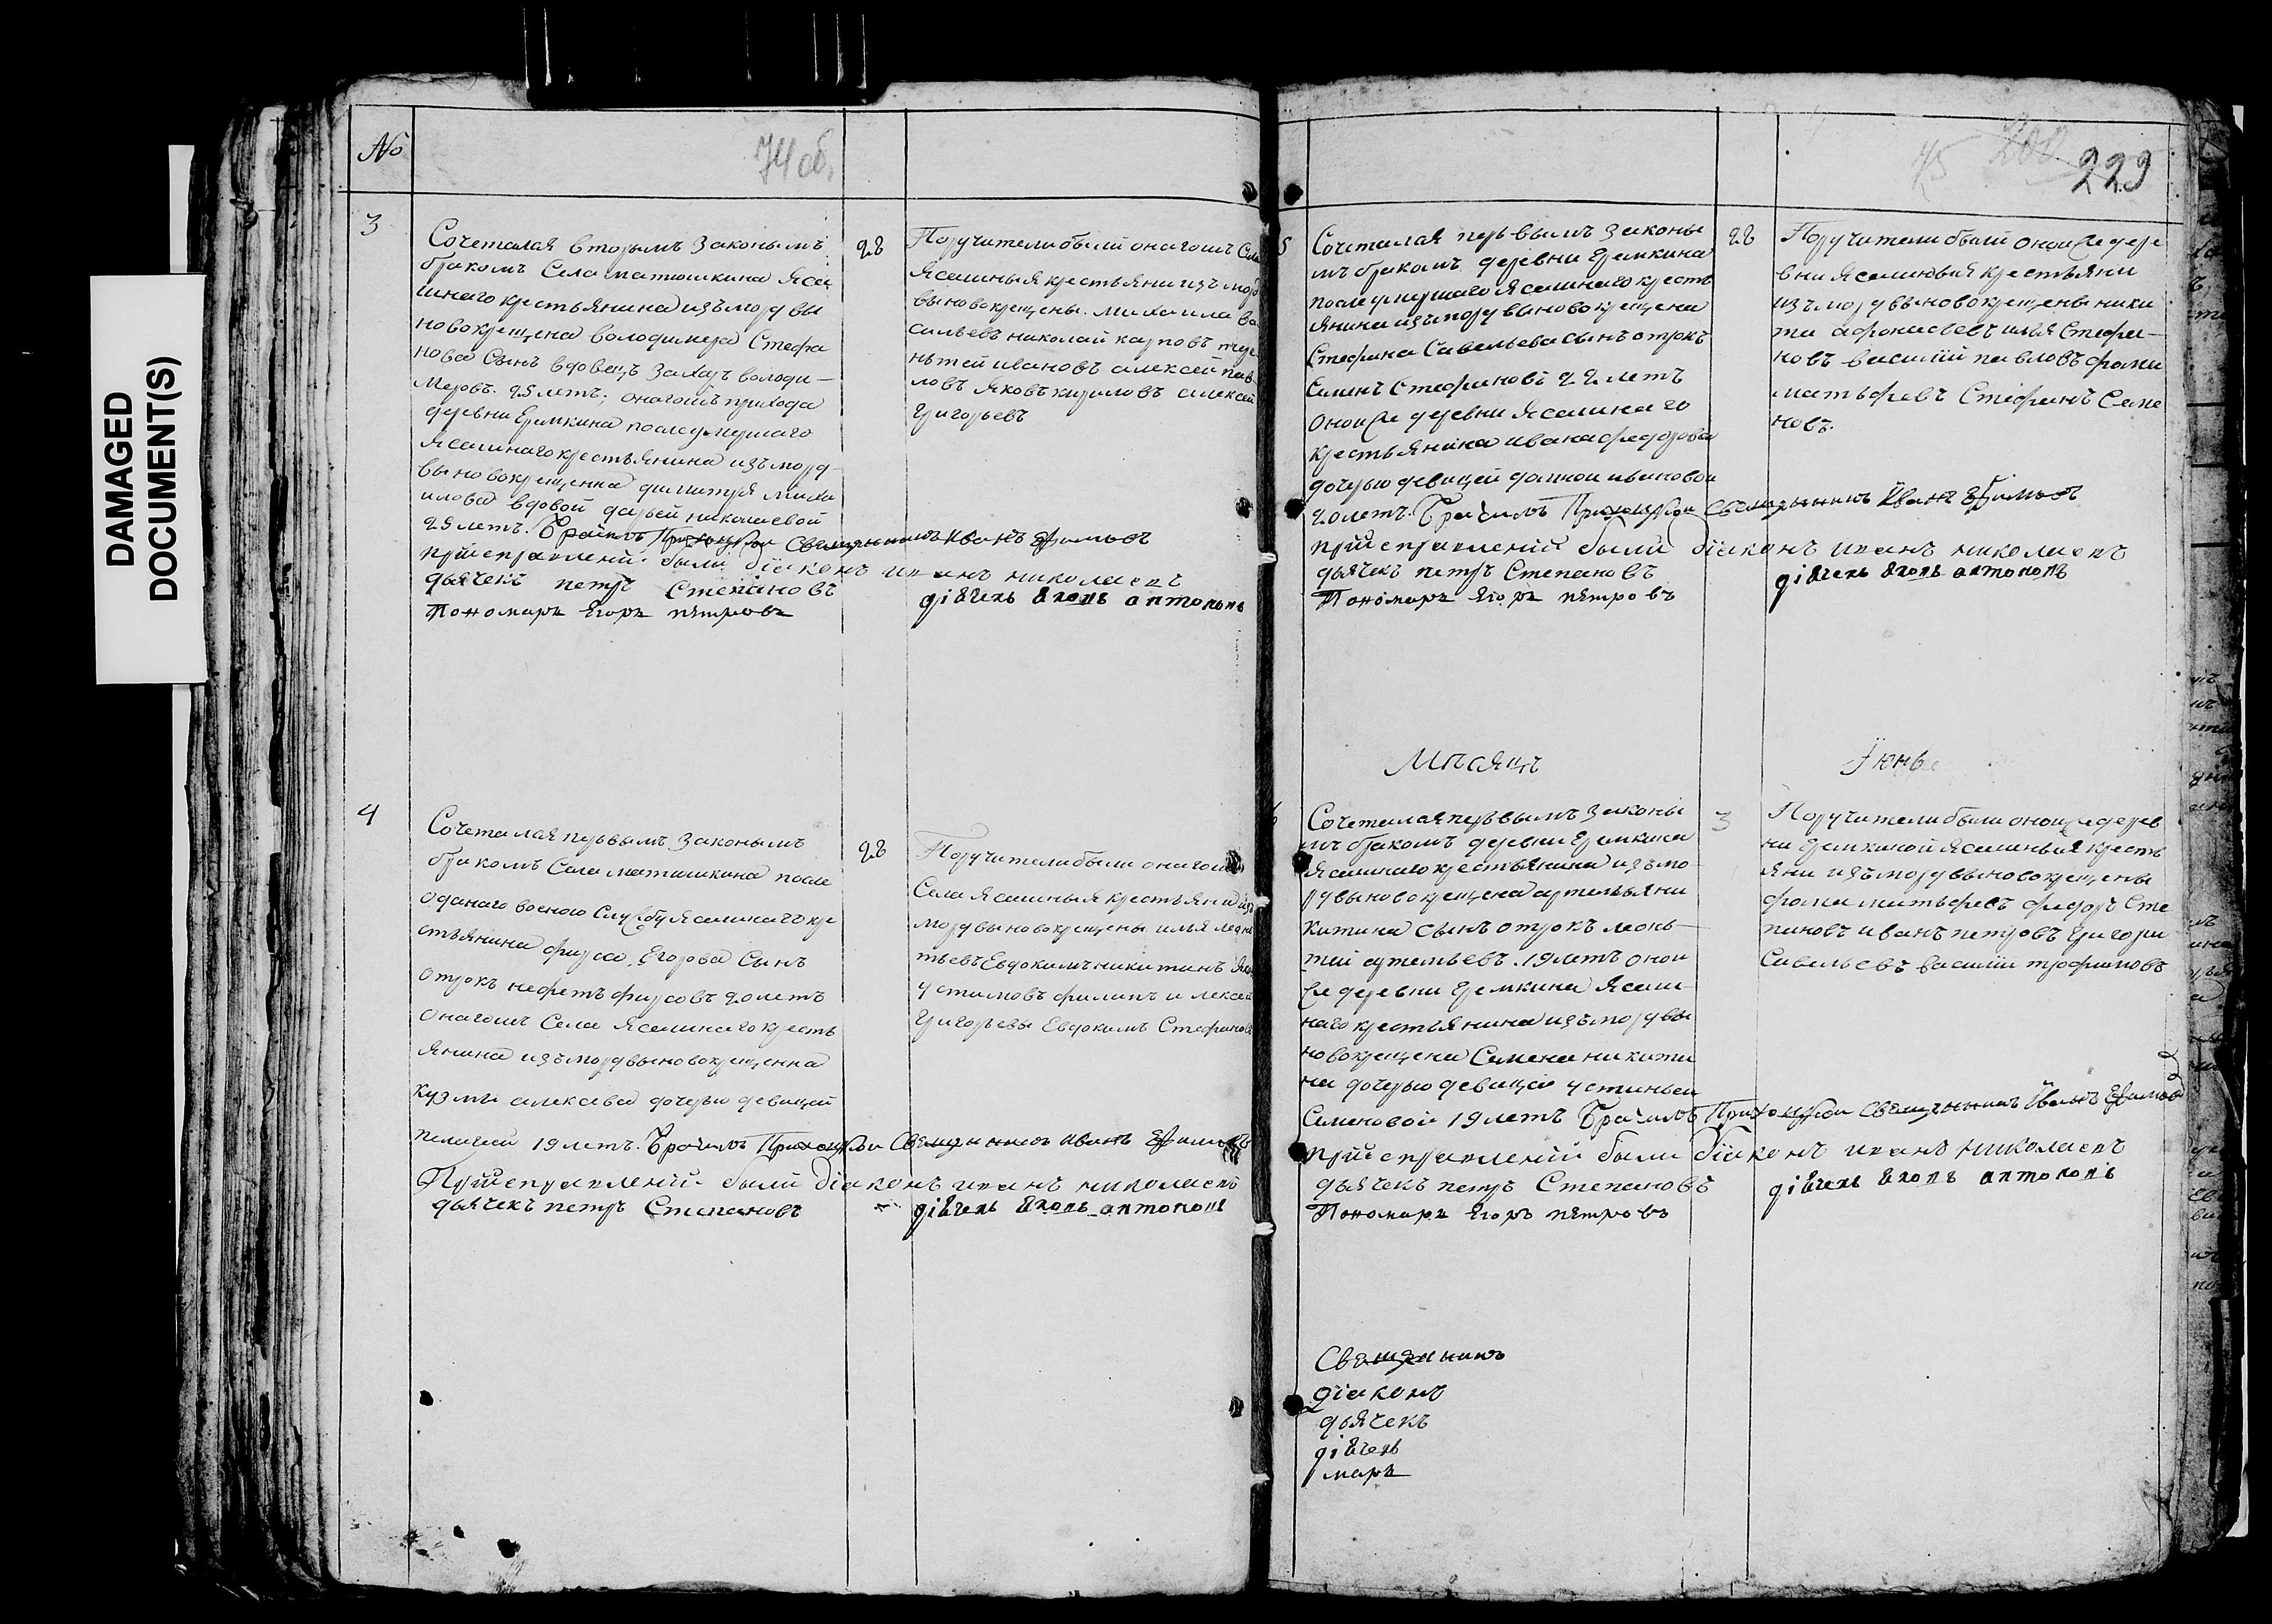 DAMAGED
DOCUMENT(S)
№
74 об.
3
Сочеталая вторымъ законымъ
бракомъ Села матюшкина Ясаш
шнаго крестьянина изъ мордвы
новокрещена володимера Стефа
нова Сынъ вдовецъ Захаръ володи-
меровъ. 25 летъ; онагошъ прихода
деревни Еремкина после умершаго
Ясашнаго крестьянина изъ морд-
вы новокрещенна димитрея миха
илова вдовой дарьей николаевой
25 летъ. Бра чилъ Приходцкои Священникъ Иванъ Ефимовъ
при исправленій были діаконъ иванъ николаевъ
дьячекъ петръ Степановъ
дьячекъ Яковъ антоновъ
Пономарь Егоръ петровъ
28
Поручители были онагошъ Села
Ясашныя крестьяни изъ морд
вы новокрещены. михаила ва
сильевъ николай карповъ тере
нътей ивановъ алексей пав
ловъ Яковъ кириловъ алексей
Григорьевъ
4
Сочеталая первымъ законымъ
бракомъ Села матюшкина после
отданаго военою Службу Ясашнаго кре
стьянина фирса Егорова Сынъ
отрокъ нефетъ фирсовъ 20 летъ
онагошъ Села Ясашнаго кресть
янина изъ мордвы новокрещенна
кузмы алексева дочерью девицей
пелагией 19 летъ. Брачилъ Приходцкои Священникъ Иванъ Ефимовъ
При исправленій были діаконъ иванъ николаевъ
дьячекъ петръ Степановъ
дьячекъ Яковъ антоновъ
28
Поручители были онагошъ
Села Ясашныя крестьяни изъ
мордвы новокрещены илья леон
тьевъ Евдокимъ никитинъ Яков
устимовъ филипъ и алексей
Григорьевы Евдокимъ Стефановъ
75
200
229
5
Сочеталая первымъ законы
мъ бракомъ деревни Еремкина
после умершаго Ясашнаго кресть
янина изъ мордвы новокрещена
Стефана Савельева сынъ отрокъ
Семенъ Стефановъ 22 летъ
оноиже деревни Ясашнаго
крестьянина ивана федорова
дочерью девицей домной ивановой
20 летъ. Брачилъ Приходцкои Священникъ Иванъ Ефимовъ
при исправленій были діаконъ иванъ николаевъ
дьячекъ петръ Степановъ
дьячекъ Яковъ антоновъ
Пономарь Егоръ петровъ
28
Поручители были оноиже дере
вни Ясашныя крестьяни
изъ мордвы новокрещены ники
та афонасьевъ илья Стефа-
новъ василий павловъ фома
матьфеевъ Стефанъ Семе
новъ.
Мѣсяцъ
Июнь
6
Сочеталая первымъ законы
мъ бракомъ деревни Еремкина
Ясашнаго крестьянина изъ мо
рдвы новокрещена артемья ни
китина сынъ отрокъ леонь-
тей артемьевъ. 19 летъ онои
же деревни Еремкина Ясаш-
наго крестьянина изъ мордвы
новокрещена Семена никити
на дочерью девицей устиньей
Семеновой 19 летъ Брачилъ Приходцкои Священникъ Иванъ Ефимовъ
при исправленій были діаконъ иванъ николаевъ
дьячекъ петръ Степановъ
дьячекъ Яковъ антоновъ
Пономарь Егоръ петровъ
3
Поручители были оноиже дерев
ни Еремкиной Ясашныя кресть
яни изъ мордвы новокрещены
фома матьфеевъ федоръ Сте
пановъ иванъ петровъ Григори
Савельевъ василии трофимовъ
Священникъ
діаконъ
дьячекъ
дьячекъ
марь